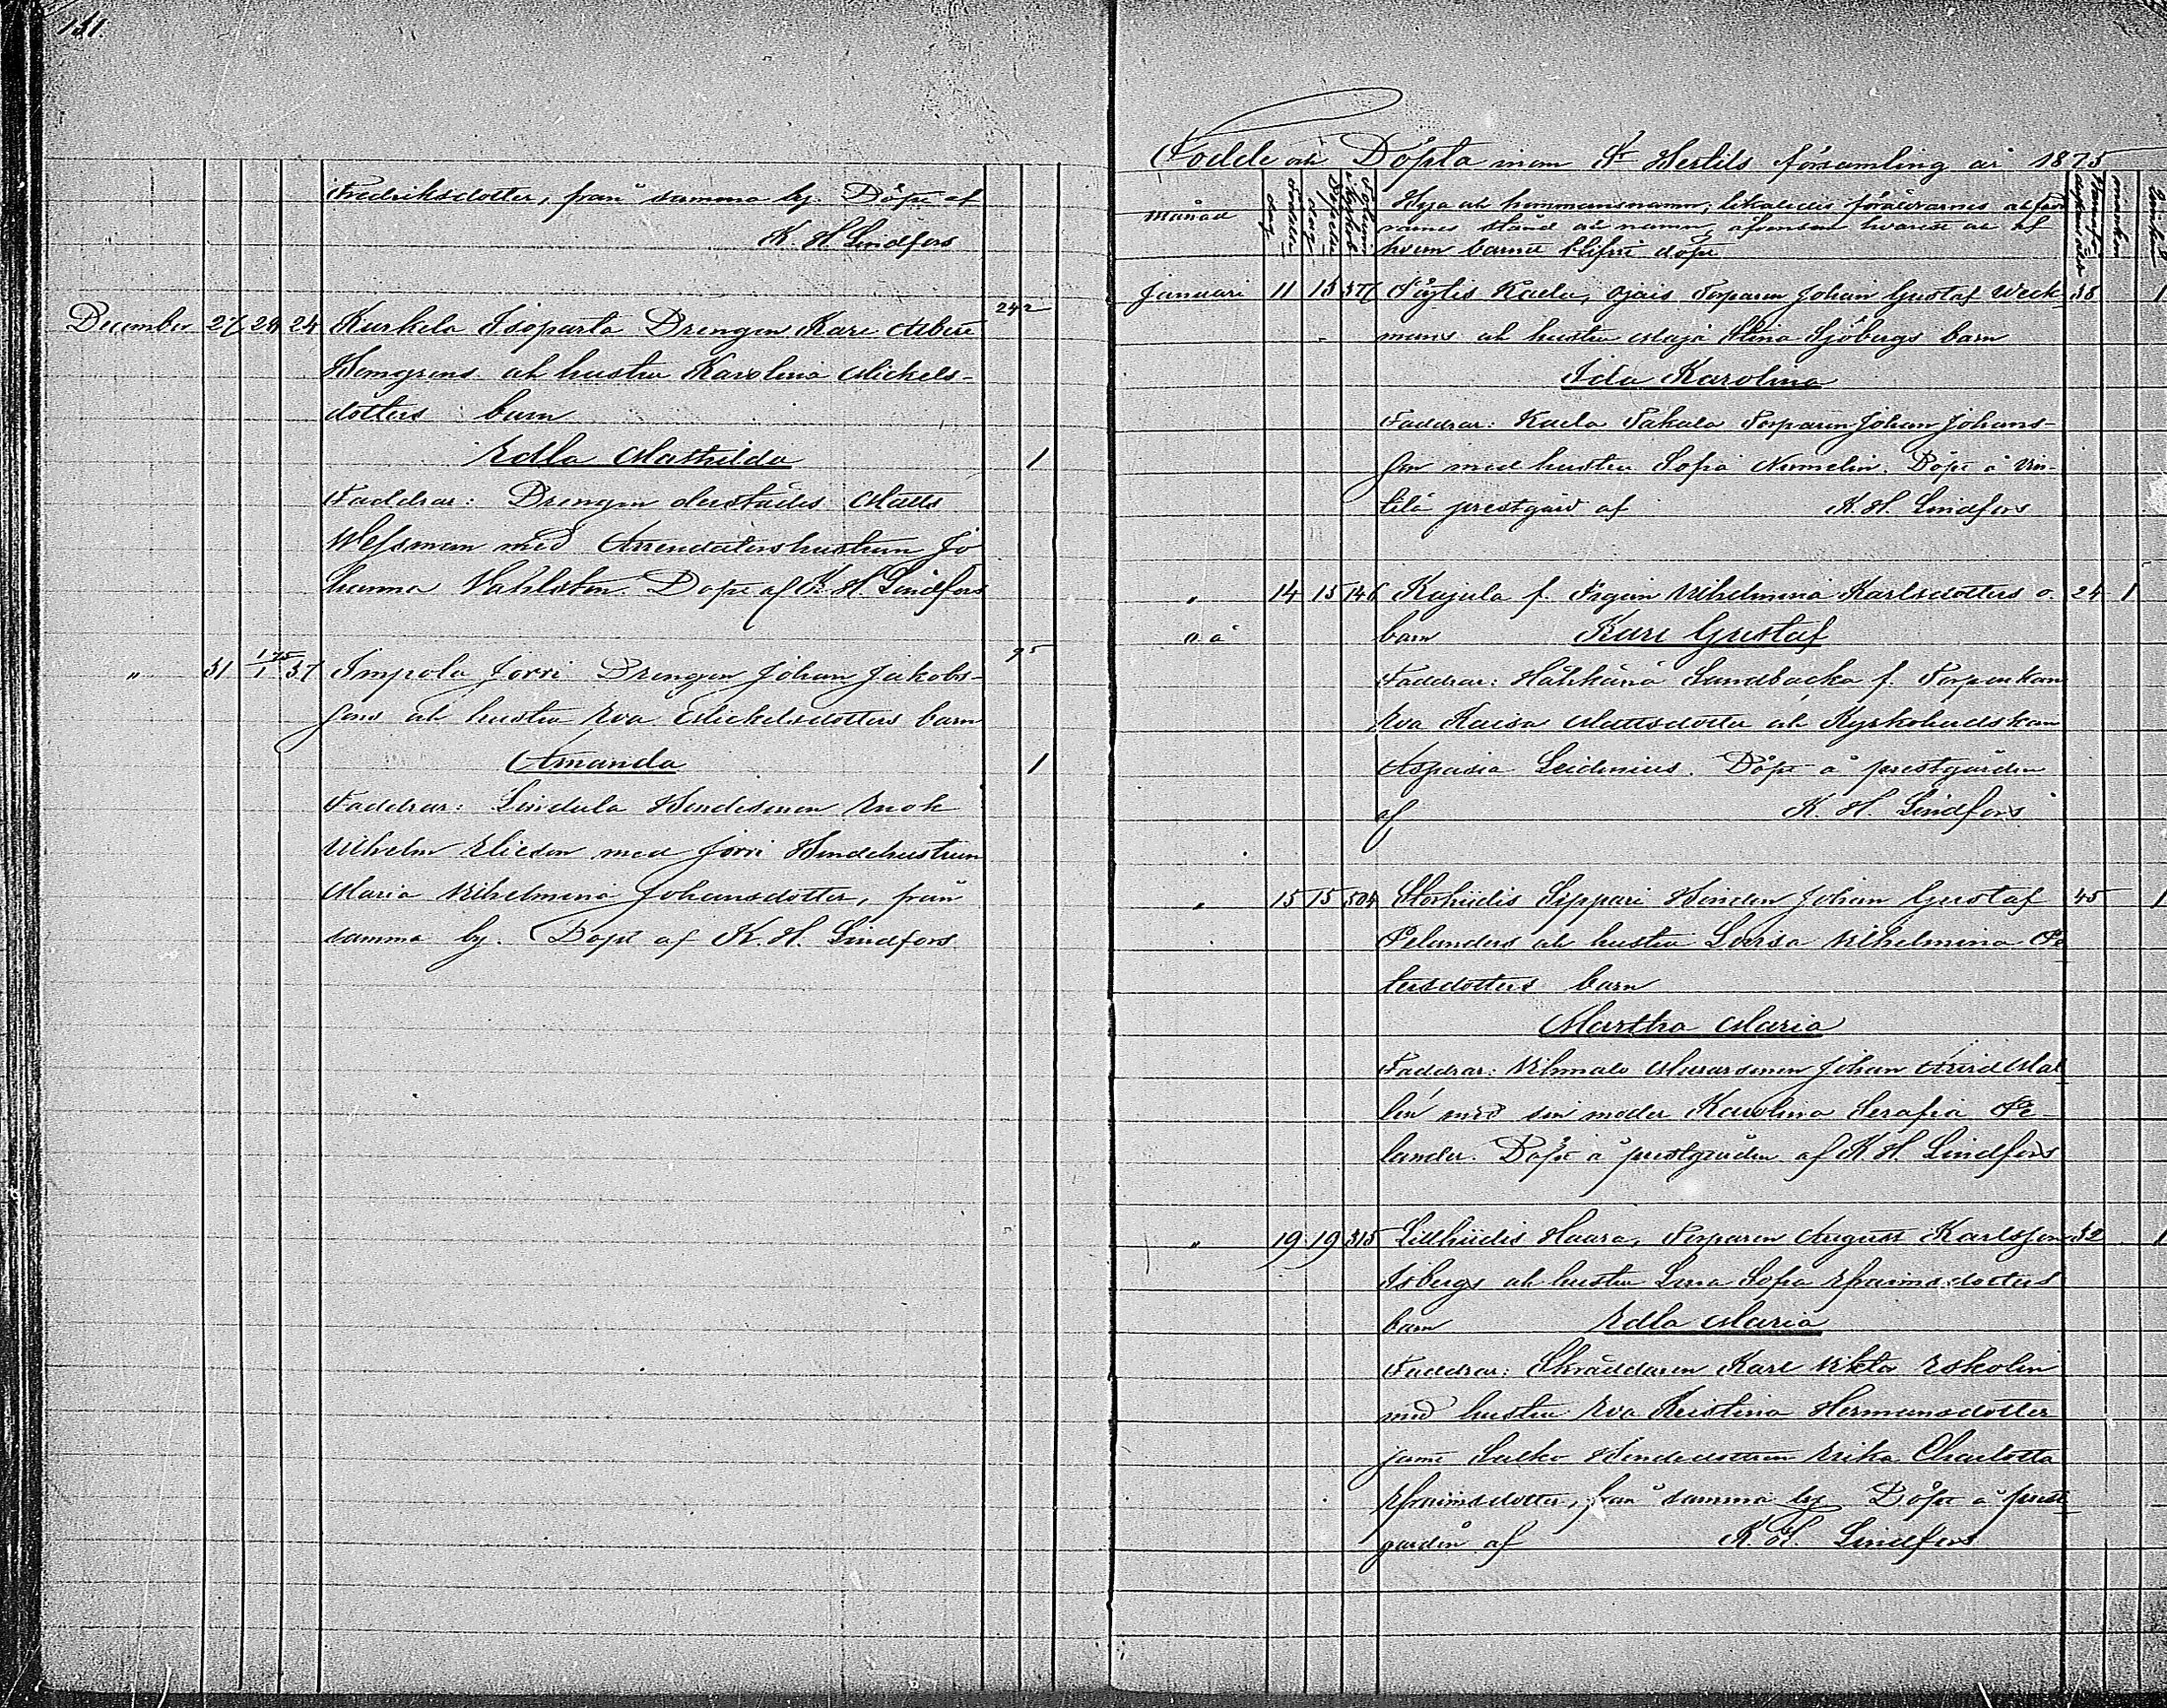 151.
Fredriksdotter, från samma by. Döpt af
K. H. Lindfors
242
December 27 28 24 Kurkela Isoparta Drengen Karl Albert
Hemgrens och hustru Karolina Mickels-
dotters barn
Edla Mathilda 1
Faddrar: Drengen derstädes Matts
Wessman med Arrendatorshustrun Jo
hanna Vahlsten. Döpt af K. H. Lindfors
95
" 31 1 75/1 37 Impola Jovri Drengen Johan Jakobs-
sons och hustru Eva Mickelsdotters barn
Amanda 1
Faddrar: Lindula Bondesonen Enok
Vilhelm Elieson med Jovri Bondehustrun
Maria Vilhelmina Johansdotter, från
samma by. Döpt af K. H. Lindfors.
Födde och Döpta inom St Bertils församling år 1875
månad Bya och hemmansnamn, likaledes föräldrarnes och fadd
rarnes stånd och namn, äfvensom hvarest och af
hvem barnet blifvit döpt
Januari 11 13 377 Pöytis Kaela, Ojais Torparen Johan Gustaf Weck 38 1
mans och hustru Maja Stina Sjöbergs barn
Ida Karolina
Faddrar: Kaela Takala Torparen Johan Johans-
son med hustru Sofia Numelin. Döpt å Vin-
tilä prestgård af K. H. Lindfors
" 14 15 146 Kajala f. Pigan Vilhelmina Karlsdotters o. 24 1
o ä barn Karl Gustaf
Faddrar: Hähkänä Sandbacka f. Torpenkan
Eva Kaisa Mattsdotter och Kyrkobudskan
Aspasia Leidenius. Döpt å prestgården
af K. H. Lindfors
" 15 15 304 Storhiidis Sippari Bonden Johan Gustaf 45 1
Pelanders och hustru Lovisa Vilhelmina Pe
tersdotters barn
Martha Maria
Faddrar: Vihmalo Murarsonen Johan Arvid Mal
lén med sin moder Karolina Serafia Pe-
lander. Döpt å prestgården af K. H. Lindfors
" 19 19 315 Lillhiidis Haara, Torparen August Karlsson 32 1
Isbergs och hustru Lena Sofia Efraimsdotters
barn Edla Maria
Faddrar: Skräddaren Karl Viktor Eskolin
med hustru Eva Kristina Hermansdotter
jemte Salko Bondedottren Erika Charlotta
Efraimsdotter, från samma by Döpt å prest
gården af K. H. Lindfors